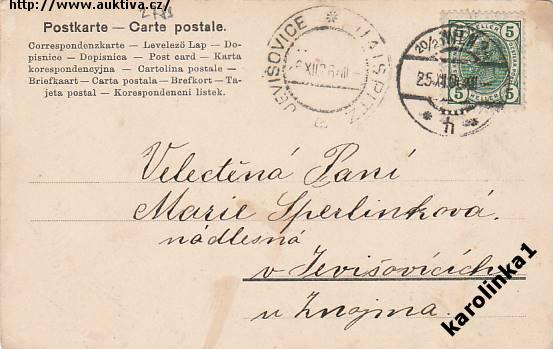 http://www.auktiva.cz/
2783
Postkarte — Carte postale.
Correspondenzkarte — Levelező Lap — Do-
pisnice — Dopisnica — Post card — Karta
korespondencyjna — Cartolina postale —
Briefkaart — Carta postala — Brefkort — Ta-
jeta postal — Korespondeneni listek.
JEVIŠOVICE JAISPITZ
a
20/2 WIEN
25
h
5 HELLER 5
5 HELLER 5
Velectěná Paní
Marie Sperlinková,
nádlesna
v Jevišovicích
u Znojma.
karolinka1